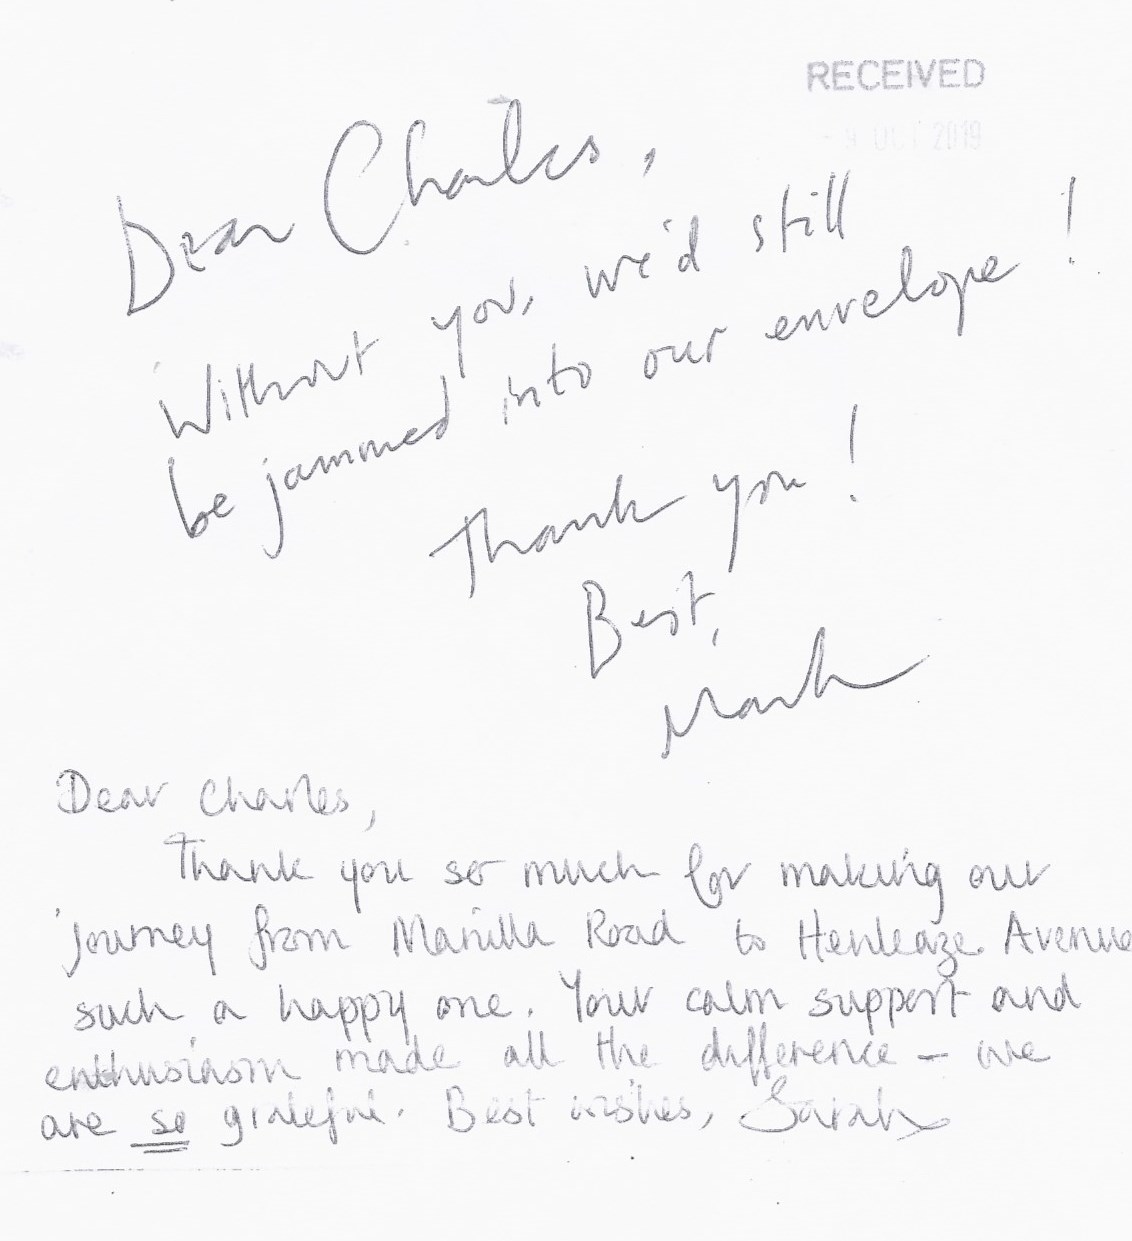 RECEIVED
- 9 OCT 2019
Dear Charles,
Without you, we'd still
be jammed into our envelope!
Thank you!
Best,
Mark
Dear Charles,
Thank you so much for making our
journey from Manilla Road to Henleaze Avenue
such a happy one. Your calm support and
enthusiasm made all the difference – we
are so grateful. Best wishes, Sarah